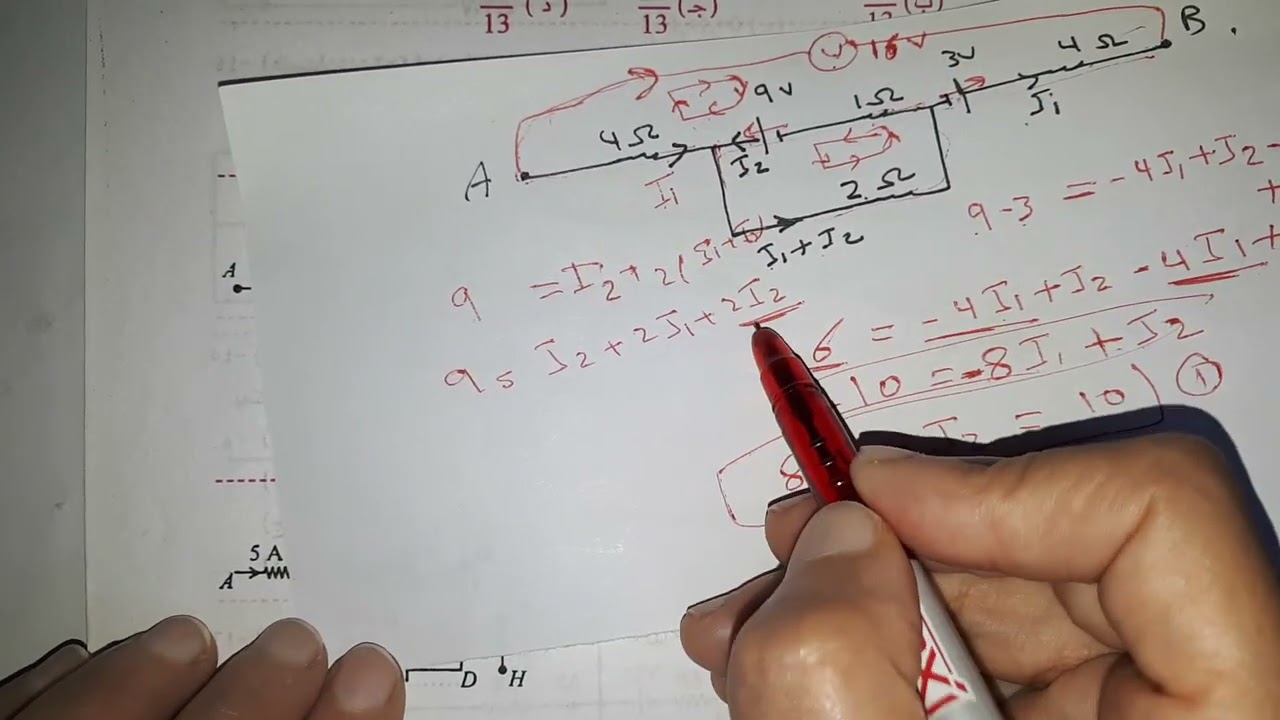 13 (د)
13 (ج)
B
V 16 V
3V
4 Ω
9V
1Ω
I₁
4Ω
I₂
A
I₁
2 Ω
I₁+I₂
9-3 = -4I₁+I₂-
+
9 = I₂+2(I₁+I₂)
9 = I₂+2I₁+2I₂
6 = -4I₁+I₂-4I₁+
-10 = -8I₁+I₂
I₂ = 10
8
1
A
5 A
A
D
H